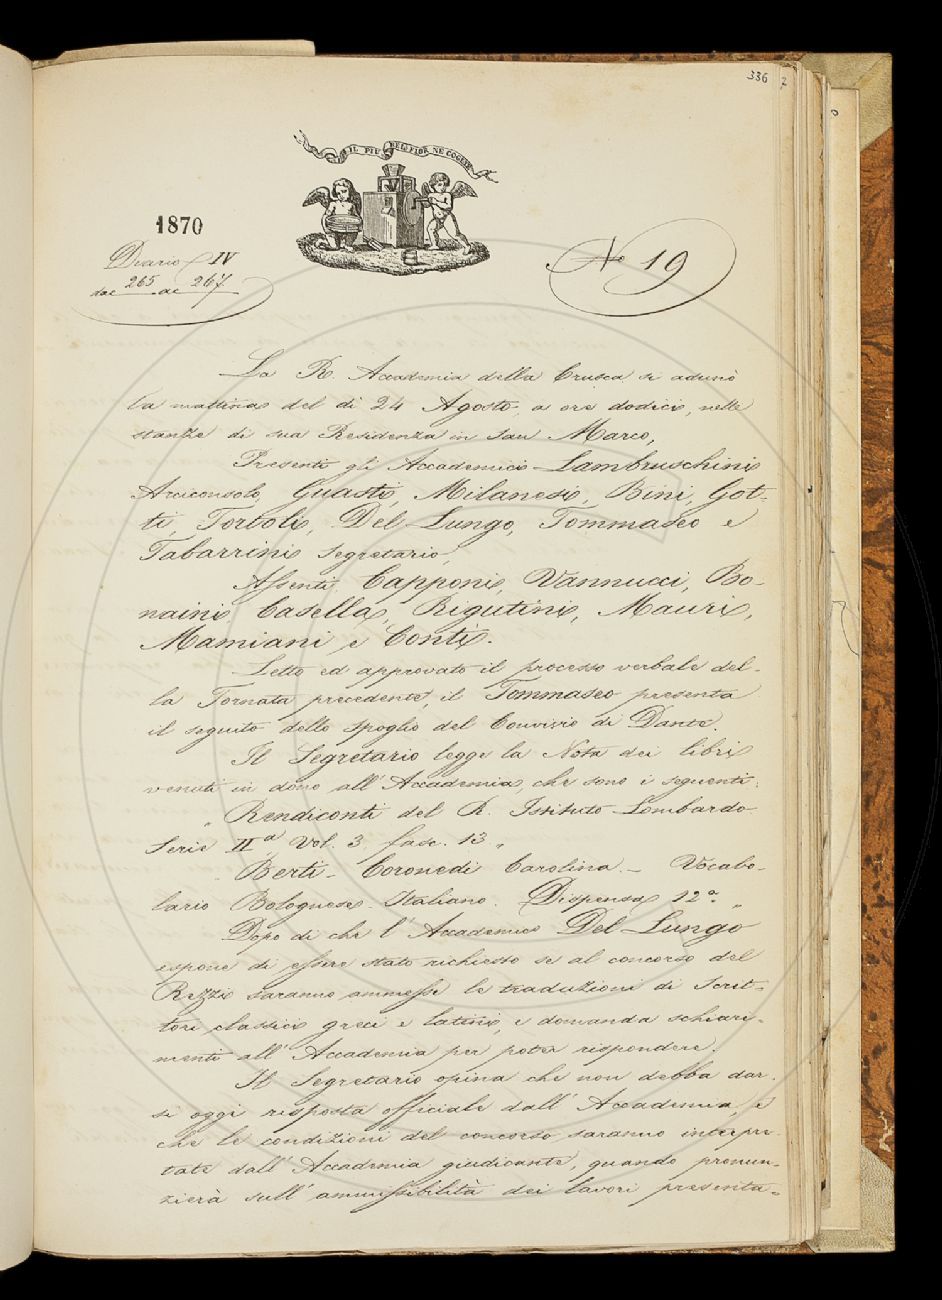 336
7
IL PIÙ BEL FIOR NE COGLIE
1870
Diario IV
dac 265 ac 267
No 19
La R. Accademia della Crusca si adunò
la mattina del dì 24 Agosto, a ore dodici, nelle
stanze di sua Residenza in San Marco,
Presenti gli Accademici Lambruschini
Arciconsolo, Guasti, Milanesi, Bini, Got-
ti, Tortoli, Del Lungo, Tommaseo e
Tabarrini Segretario,
Assenti Capponi, Vannucci, Bo-
naini Casella, Rigutini, Mauri,
Mamiani e Conti.
Letto ed approvato il processo verbale del-
la Tornata precedente, il Tommaseo presenta
il seguito dello spoglio del Convivio di Dante.
Il Segretario legge la Nota dei libri
venuti in dono all'Accademia, che sono i seguenti:
„ Rendiconti del R. Istituto Lombardo
Serie IIa Vol. 3. fasc. 13 „
Berti-Coronedi Carolina. - Vocabo-
lario Bolognese-Italiano. Dispensa 12a. „
Dopo di che l'Accademico Del Lungo
espone di essere stato richiesto se al concorso del
Rezzi saranno ammesse le traduzioni di Scrit-
tori classici greci e latini, e domanda schiari-
menti all'Accademia per poter rispondere.
Il Segretario opina che non debba dar-
si oggi risposta officiale dall'Accademia, e
che le condizioni del concorso saranno interpre-
tate dall'Accademia giudicante, quando pronun-
zierà sull'ammissibilità dei lavori presenta-